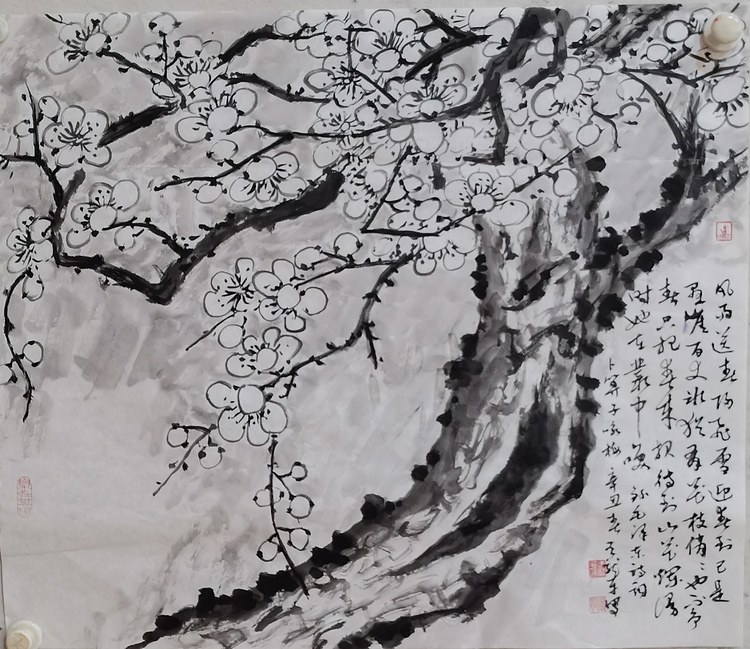 风雨送春归飞雪迎春到已是
悬崖百丈冰犹有花枝俏〻也不争
春只把春来报待到山花烂漫
时她在丛中咲 录毛泽东诗词
卜算子咏梅 辛丑春